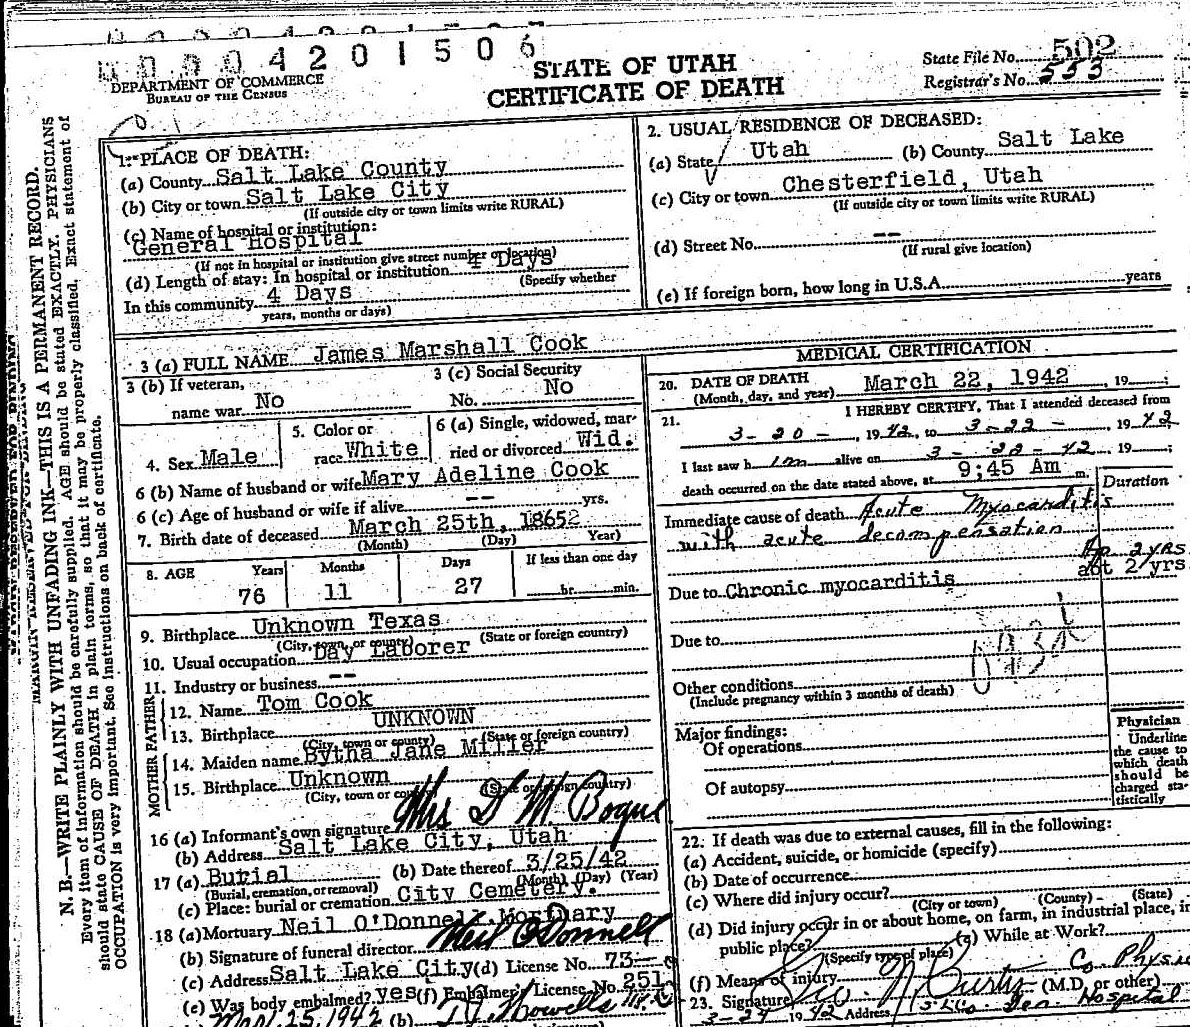 4201506
DEPARTMENT OF COMMERCE
BUREAU OF THE CENSUS
STATE OF UTAH
CERTIFICATE OF DEATH
State File No. 502
Registrar's No. 553
N. B.—WRITE PLAINLY WITH UNFADING INK—THIS IS A PERMANENT RECORD.
Every item of information should be carefully supplied. AGE should be stated EXACTLY. PHYSICIANS
should state CAUSE OF DEATH in plain terms, so that it may be properly classified. Exact statement of
OCCUPATION is very important. See instructions on back of certificate.
1. PLACE OF DEATH:
(a) County Salt Lake County
(b) City or town Salt Lake City
(If outside city or town limits write RURAL)
(c) Name of hospital or institution:
General Hospital
(If not in hospital or institution give street number or location)
(d) Length of stay: In hospital or institution 4 Days
(Specify whether
In this community 4 Days
years, months or days)
2. USUAL RESIDENCE OF DECEASED:
(a) State Utah (b) County Salt Lake
(c) City or town Chesterfield, Utah
(If outside city or town limits write RURAL)
(d) Street No. --
(If rural give location)
(e) If foreign born, how long in U.S.A. years
3 (a) FULL NAME James Marshall Cook
3 (b) If veteran,
name war No
3 (c) Social Security
No. No
4. Sex Male
5. Color or
race White
6 (a) Single, widowed, mar-
ried or divorced Wid.
6 (b) Name of husband or wife Mary Adeline Cook
6 (c) Age of husband or wife if alive -- yrs.
7. Birth date of deceased March 25th, 18652
(Month) (Day) Year)
8. AGE Years Months Days If less than one day
76 11 27 hr. min.
9. Birthplace Unknown Texas
(City, town, or county) (State or foreign country)
10. Usual occupation Day Laborer
11. Industry or business --
FATHER
12. Name Tom Cook
13. Birthplace UNKNOWN
(City, town or county) (State or foreign country)
MOTHER
14. Maiden name Bytha Jane Miller
15. Birthplace Unknown
(City, town or county) (State or foreign country)
16 (a) Informant's own signature Mrs D M Bogue
(b) Address Salt Lake City, Utah
17 (a) Burial (b) Date thereof 3/25/42
(Burial, cremation, or removal) (Month) (Day) (Year)
(c) Place: burial or cremation City Cemetery.
18 (a) Mortuary Neil O'Donnell Mortuary
(b) Signature of funeral director Neil O'Donnell
(c) Address Salt Lake City (d) License No. 73
(e) Was body embalmed? yes (f) Embalmer's License No. 251
Mar. 25, 1942 (b)
MEDICAL CERTIFICATION
20. DATE OF DEATH March 22, 1942, 19
(Month, day, and year)
21. I HEREBY CERTIFY, That I attended deceased from
3-20-, 1942, to 3-22-, 1942
I last saw h im alive on 3-22-42, 19 ;
death occurred on the date stated above, at 9:45 Am m.
Duration
Immediate cause of death Acute Myocarditis
with acute decompensation
2 yrs
Due to Chronic myocarditis abt 2 yrs
Due to
Other conditions
(Include pregnancy within 3 months of death)
Major findings:
Of operations
Of autopsy
Physician
Underline
the cause to
which death
should be
charged sta-
tistically
22. If death was due to external causes, fill in the following:
(a) Accident, suicide, or homicide (specify)
(b) Date of occurrence
(c) Where did injury occur?
(City or town) (County) (State)
(d) Did injury occur in or about home, on farm, in industrial place, in
public place? (g) While at Work?
(Specify type of place)
(f) Means of injury Co. Physic
23. Signature N. Curtis (M.D. or other)
3-24 1942 Address S L Co. Gen. Hospital